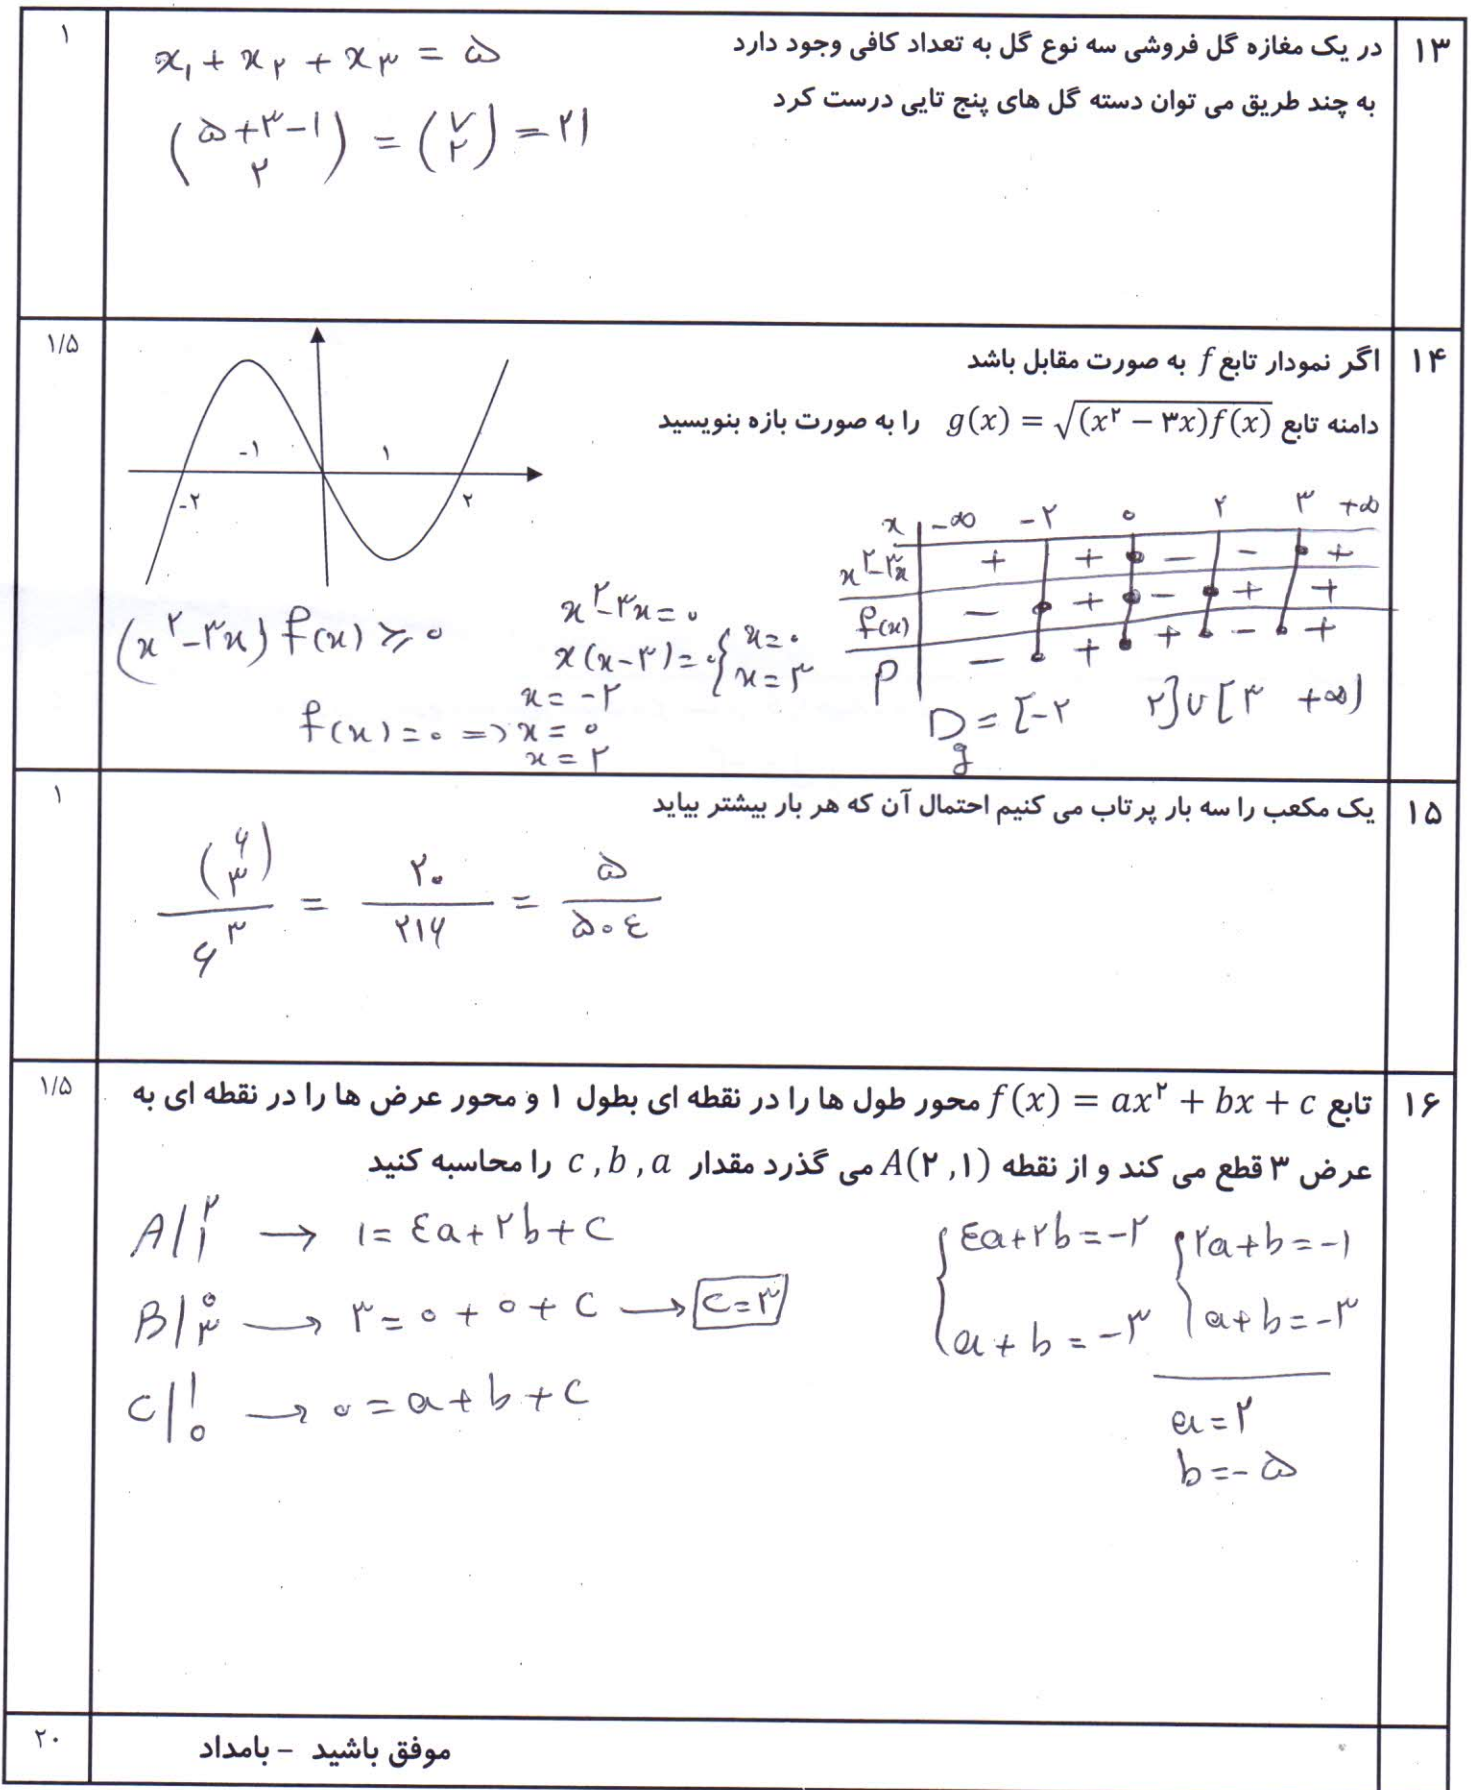 ۱۳
در یک مغازه گل فروشی سه نوع گل به تعداد کافی وجود دارد
به چند طریق می توان دسته گل های پنج تایی درست کرد
۱
x₁ + x₂ + x₃ = ۵
(۵+۳-۱ ۲) = (۷ ۲) = ۲۱
۱۴
اگر نمودار تابع f به صورت مقابل باشد
دامنه تابع g(x) = √(x² − ۳x)f(x) را به صورت بازه بنویسید
۱/۵
-۱ ۱
-۲ ۲
x | -∞ -۲ ۰ ۲ ۳ +∞
x²-۳x + + - - +
f(x) - + - + +
P - + + - +
(x²-۳x) f(x) ≥ ۰
x²-۳x = ۰
x(x-۳) = ۰ { x=۰ x=۳
f(x) = ۰ => x = -۲ x = ۰ x = ۲
Dg = [-۲ ۲] ∪ [۳ +∞)
۱۵
یک مکعب را سه بار پرتاب می کنیم احتمال آن که هر بار بیشتر بیاید
۱
(۶ ۳) / ۶³ = ۲۰ / ۲۱۶ = ۵ / ۵۰۴
۱۶
تابع f(x) = ax² + bx + c محور طول ها را در نقطه ای بطول ۱ و محور عرض ها را در نقطه ای به
عرض ۳ قطع می کند و از نقطه A(۲,۱) می گذرد مقدار c , b , a را محاسبه کنید
۱/۵
A|²₁ → ۱ = ۴a + ۲b + c
B|⁰₃ → ۳ = ۰ + ۰ + c → c = ۳
C|¹₀ → ۰ = a + b + c
{ ۴a + ۲b = -۲ { ۲a + b = -۱
a + b = -۳ a + b = -۳
a = ۲
b = -۵
موفق باشید – بامداد
۲۰